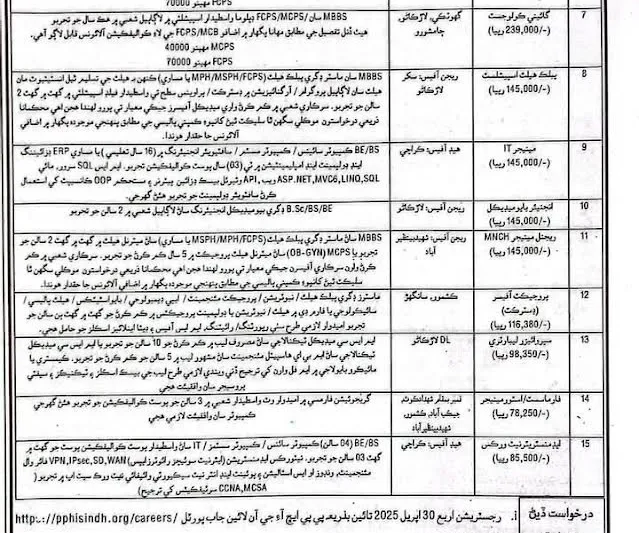 70000 FCPS مهينو
7 گائيني کولوجسٽ (239,000/- رپيا) گهوٽڪي، لاڙڪاڻو، ڄامشورو MBBS سان FCPS/MCPS/ ڊپلوما واسطيدار اسپيشلٽي ۾ لاڳاپيل شعبي ۾ هڪ سال جو تجربو
هيٺ ڏنل تفصيل جي مطابق مهانا پگهار ۾ اضافو FCPS/MCB جي لاءِ کوالفڪيشن الائونس لاڳو آهي.
40000 MCPS مهينو
70000 FCPS مهينو
8 پبلڪ هيلٿ اسپيشلسٽ (145,000/- رپيا) ريجن آفيس: سکر لاڙڪاڻو MBBS سان ماسٽر ڊگري پبلڪ هيلٿ (MPH/MSPH/FCPS يا مساوي) ڪنهن به هيلٿ جي تسليم ٿيل انسٽيٽيوٽ مان
هيلٿ سان لاڳاپيل پروگرام / آرگنائيزيشن ۾ ڊسٽرڪٽ / پراونس سطح تي واسطيدار فيلڊ اسپيشلٽي ۾ گهٽ ۾ گهٽ 2
سالن جو تجربو. سرڪاري شعبي ۾ ڪم ڪرڻ وارن ميڊيڪل آفيسرز جيڪي معيار تي پورو لهندا هجن اهي محڪماڻا
ذريعي درخواستون موڪلي سگهن ٿا سليڪٽ ٿيڻ کانپوءِ ڪمپني پاليسي جي مطابق پنهنجي موجوده پگهار ۾ اضافي
الائونس جا حقدار هوندا.
9 مينيجر IT (145,000/- رپيا) هيڊ آفيس: ڪراچي BE/BS ڪمپيوٽر سائينس / ڪمپيوٽر سسٽمز / سافٽويئر انجنيئرنگ ۾ (16 سال تعليمي) يا مساوي ERP ڊزائننگ
ڊولپمينٽ اينڊ امپليمينٽيشن ۾ ٽي (03) سال پوسٽ کواليفڪيشن تجربو. ايم ايس SQL سرور، مائي
SQL، LINQ، MVC6، ASP.NET ويب API، وئريئبل بيسڊ ڊزائين پيٽرنز ۽ مستحڪم OOP کانسيپٽ کي استعمال
ڪرڻ سافٽويئر ڊولپمينٽ جو تجربو هئڻ گهرجي.
10 انجنيئر بايوميڊيڪل (145,000/- رپيا) ريجن آفيس: لاڙڪاڻو B.Sc/BS/BE ڊگري بيوميڊيڪل انجنيئرنگ سان لاڳاپيل شعبي ۾ 2 سالن جو تجربو
11 ريجنل مينيجر MNCH (145,000/- رپيا) ريجن آفيس: شهيد بينظير آباد MBBS سان ماسٽر ڊگري پبلڪ هيلٿ (MSPH/MPH/FCPS يا مساوي) سان ميٽرنل هيلٿ ۾ گهٽ ۾ گهٽ 2 سالن جو
تجربو يا MCPS (OB-GYN) سان ميٽرنل هيلٿ پروجيڪٽ ۾ 5 سال ڪم ڪرڻ جو تجربو. سرڪاري شعبي ۾ ڪم
ڪرڻ وارن سرڪاري آفيسرن جيڪي معيار تي پورو لهندا هجن اهي محڪماڻا ذريعي درخواستون موڪلي سگهن ٿا
سليڪٽ ٿيڻ کانپوءِ ڪمپني پاليسي جي مطابق پنهنجي موجوده پگهار ۾ اضافي الائونس جا حقدار هوندا.
12 پروجيڪٽ آفيسر (ڊسٽرڪٽ) (116,380/- رپيا) ڪشمور، سانگهڙ ماسٽرز ڊگري پبلڪ هيلٿ / نيوٽريشن / پروجيڪٽ مئنجمينٽ / ايپي ڊيميولوجي / بايواسٽيٽڪس / هيلٿ پاليسي /
سائيڪولوجي يا فارم ڊي ۾ هيلٿ / نيوٽريشن يا ڊولپمينٽ پروجيڪٽس ۾ ڪم ڪرڻ جو گهٽ ۾ گهٽ ٻن سالن جو
تجربو اميدوار لازمي طرح سٺي رپورٽنگ / رائيٽنگ، ايم ايس آفيس ۽ ڊيٽا اينالائيز اسڪلز جو حامل هجي.
13 سپروائيزر ليبارٽري (98,350/- رپيا) DL لاڙڪاڻو ايم ايس سي ميڊيڪل ٽيڪنالاجي سان مصروف ليب ۾ ڪم ڪرڻ جو 10 سالن جو تجربو يا ايم ايس سي ميڊيڪل
ٽيڪنالاجي سان ايم بي اي هاسپيٽل مئنجمينٽ سان مشهور ليب ۾ 5 سالن جو ڪم ڪرڻ جو تجربو. ڪيمسٽري يا
مائيڪروبايولاجي ۾ ايم فل وارن کي ترجيح ڏني ويندي لازمي طرح ليب جي بيسڪ اسڪلز ۽ ٽيڪنيڪز ۽ سيفٽي
پروسيجر سان واقفيت هجي
14 فارماسسٽ/اسٽور مينيجر (78,250/- رپيا) قمبر شهدادڪوٽ، جيڪب آباد، ڪشمور، شهيد بينظير آباد گريجوئيشن فارميسي ۾ اميدوار وٽ واسطيدار شعبي ۾ 3 سالن جو پوسٽ کواليفڪيشن جو تجربو هئڻ گهرجي
ڪمپيوٽر سان واقفيت لازمي هجي
15 ايڊمنسٽريٽر نيٽ ورڪس (85,500/- رپيا) هيڊ آفيس: ڪراچي BE/BS (04 سالن) ڪمپيوٽر سائنس / ڪمپيوٽر سسٽمز / IT سان واسطيدار پوسٽ کواليفڪيشن جو گهٽ ۾
گهٽ 03 سالن جو تجربو. نيٽورڪس ايڊمنسٽريشن (ايٿرنيٽ سوئيچز رائوٽرز ايپس) VPN، IPsec، SD، WAN فائر وال
مئنجمينٽ، ونڊوز او ايس انسٽاليشن ۽ پوئينٽ اينڊ انٽرنيٽ سيڪيورٽي وائيفائي نيٽ ورڪ سيٽ اپ ۾ تجربو (
CCNA، MCSA سرٽيفڪيٽس کي ترجيح)
درخواست ڏيڻ i. رجسٽريشن اربع 30 اپريل 2025 تائين بذريعہ پي پي ايڇ آءِ جي آن لائين جاب پورٽل / http://pphisindh.org/careers/